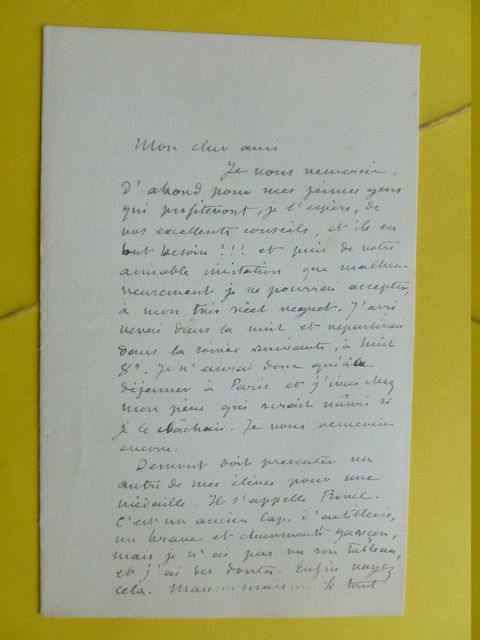 Mon cher ami
Je vous remercie,
d'abord pour mes jeunes gens
qui profiteront, je l'espère, de
vos excellents conseils, et ils en
ont besoin !!! et puis de votre
aimable invitation que malheu-
reusement je ne pourrai accepter,
à mon très réel regret. J'arri
verai dans la nuit et repartirai
dans la soirée suivante, à huit
8h. Je n'aurai donc qu'à
déjeuner à Paris et j'irai chez
mon père qui serait nâvré si
je le lâchais. Je vous remercie
encore.
Demont doit présenter un
autre de mes élèves pour une
médaille. Il s'appelle
C'est un ancien cap. d'artillerie,
un brave et charmant garçon,
mais je n'ai pas vu son tableau,
et j'ai des doutes. Enfin voyez
cela. Mais.... mais.... le tout